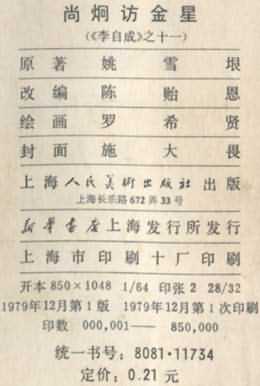 尚炯访金星
(《李自成》之十一)
原著 姚雪垠
改编 陈贻恩
绘画 罗希贤
封面 施大畏
上海人民美術出版社出版
上海长乐路672弄33号
新华书店上海发行所发行
上海市印刷十厂印刷
开本 850×1048 1/64 印张 2 28/32
1979年12月第1版 1979年12月第1次印刷
印数 000,001—— 850,000
统一书号: 8081·11734
定价: 0.21 元